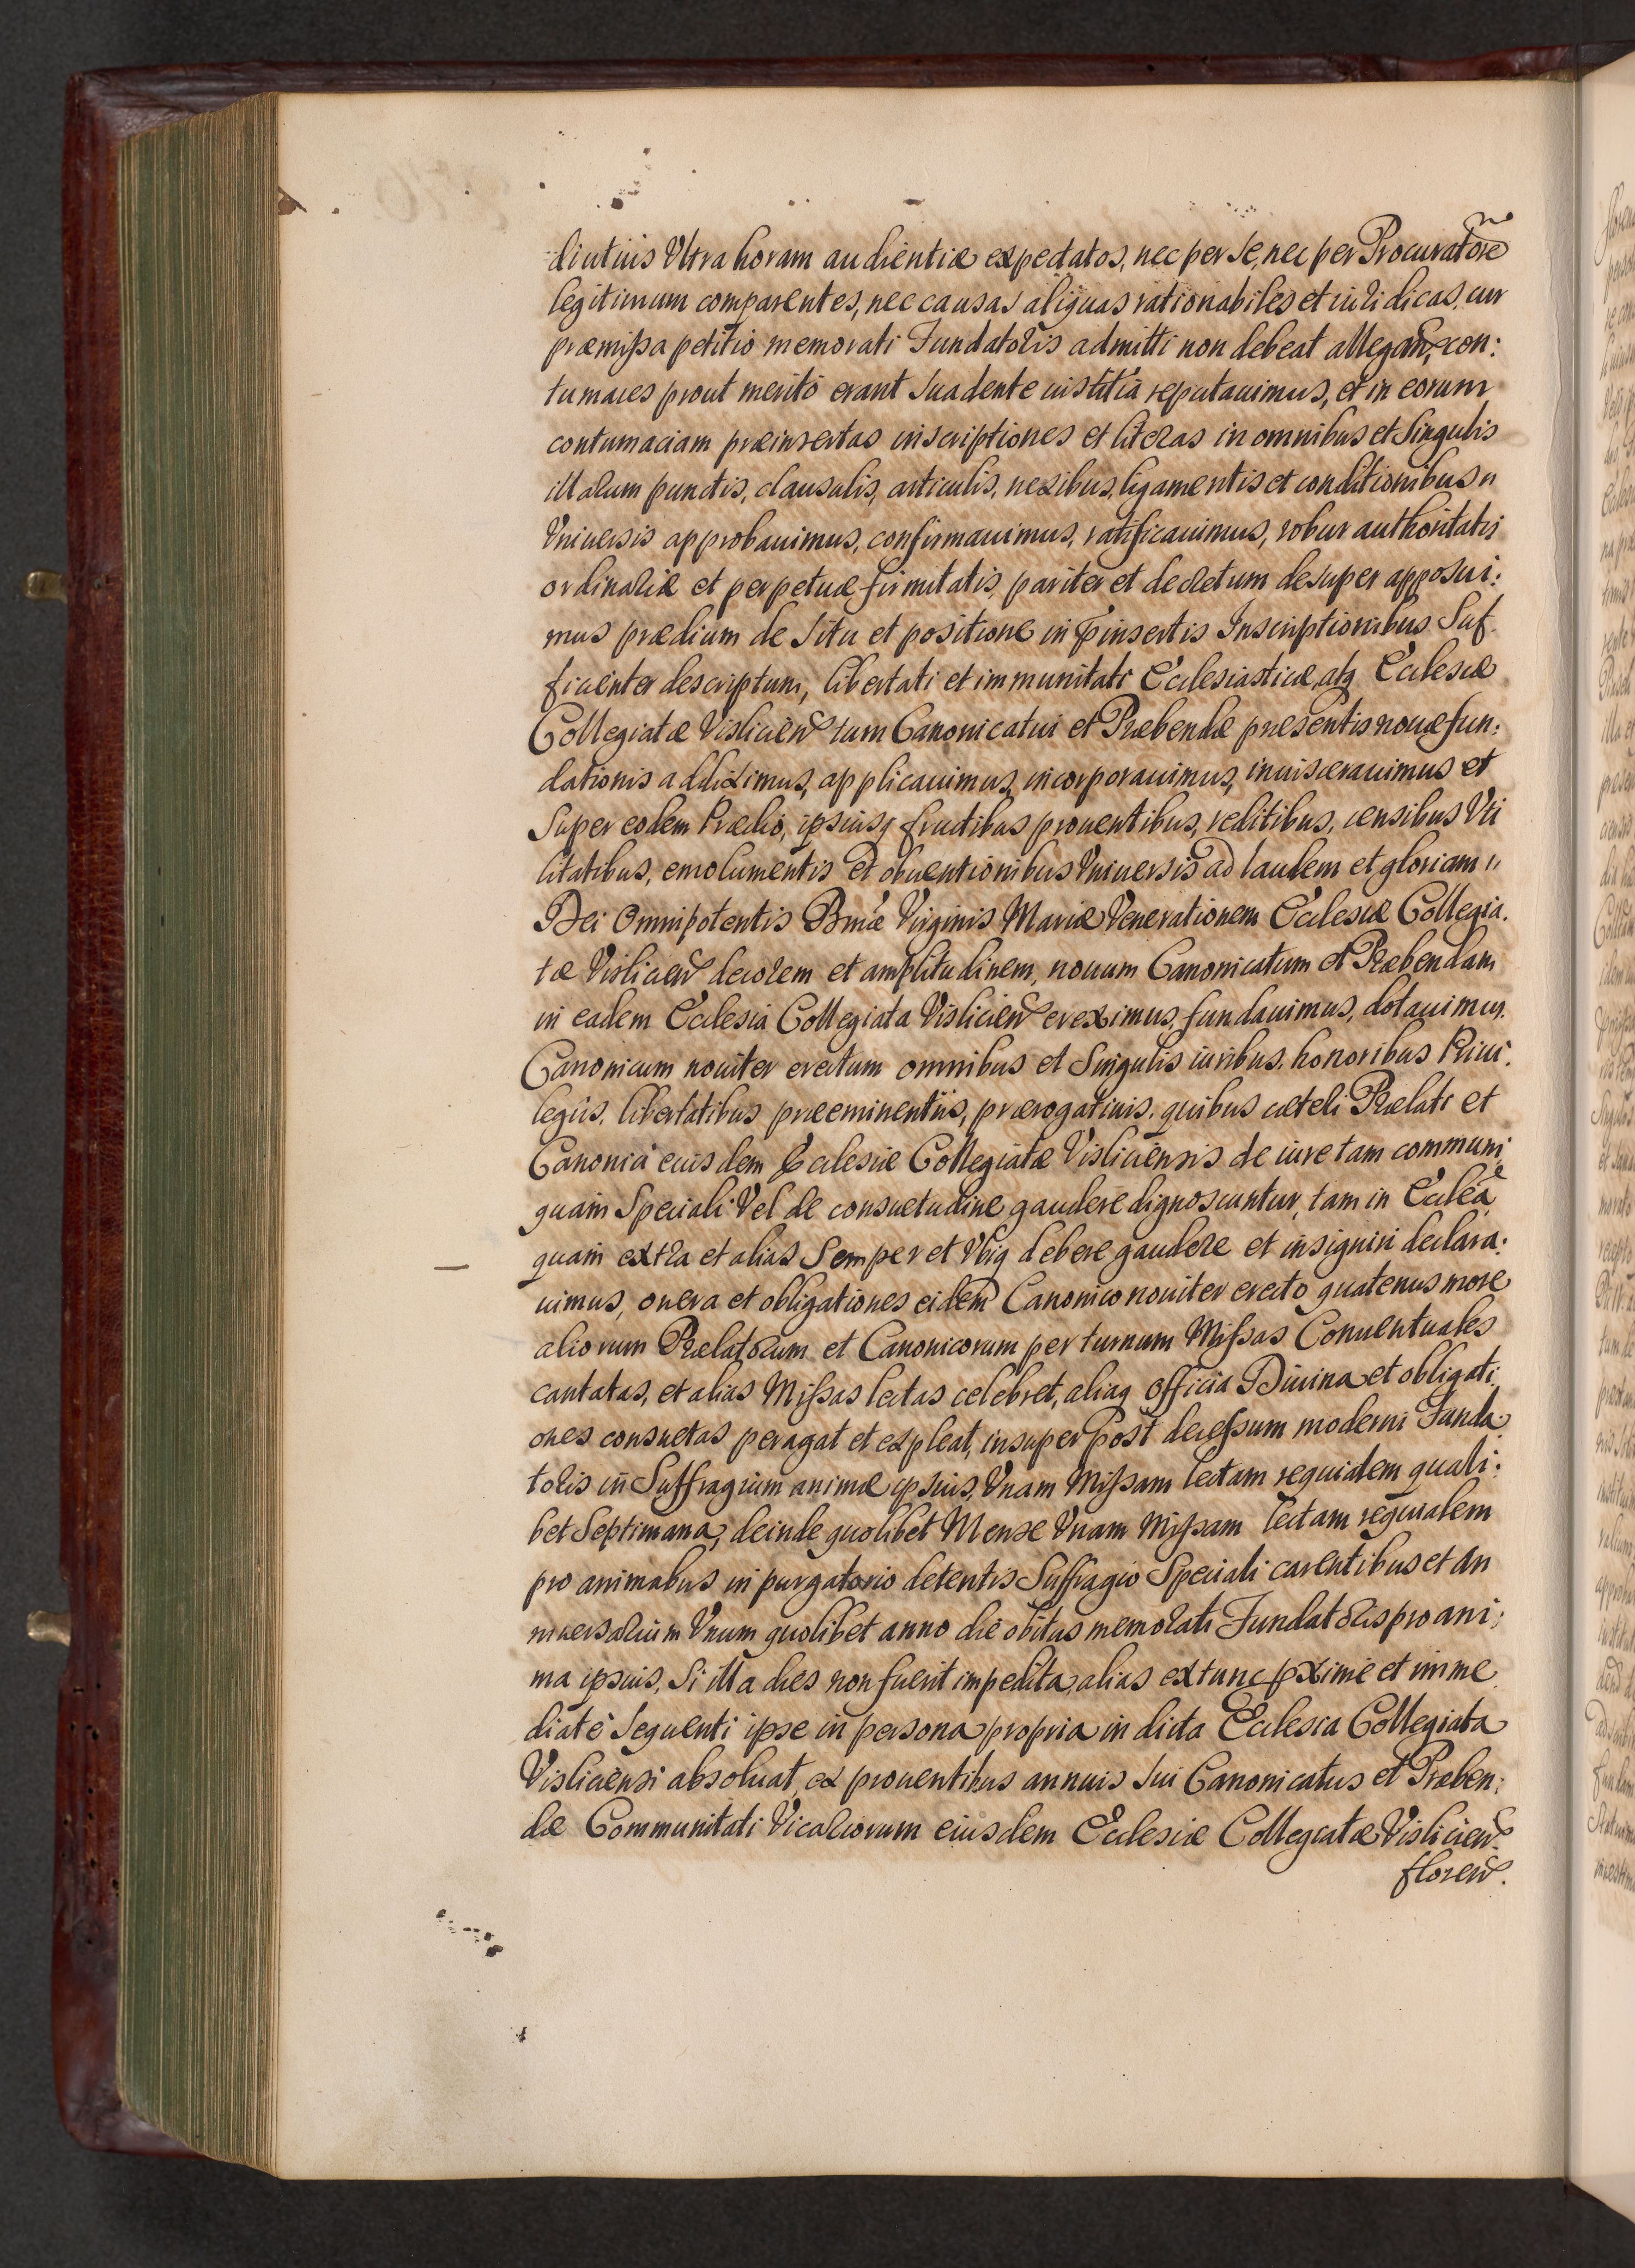 diutius Vltra horam audientiæ expectatos, nec per se, nec per Procuratorē
legitimum comparentes, nec causas aliquas rationabiles et iuridicas, cur
præmissa petitio memorati Fundatoris admitti non debeat allegan̄, con:
tumaces prout meritò erant suadente iustitia reputauimus, et in eorum
contumaciam præinsertas inscriptiones et literas in omnibus et singulis
illarum punctis, clausulis, articulis, nexibus, ligamentis et conditionibus
Vniuersis approbauimus, confirmauimus, ratificauimus, robur authoritatis
ordinariæ et perpetuæ firmitatis, pariter et decretum desuper apposui:
mus prædium de situ et positione in p̄insertis Inscriptionibus Suf:
ficienter descriptum, libertati et immunitati Ecclesiasticæ, atq Ecclesiæ
Collegiatæ Vislicien̄ tum Canonicatui et Præbendæ præsentis nouæ fun:
dationis addiximus, applicauimus, incorporauimus, inuiscerauimus et
Super eodem Prædio, ipsiusq fructibus prouentibus, reditibus, censibus Vti
litatibus, emolumentis et obuentionibus Vniuersis ad laudem et gloriam
Dei Omnipotentis Bmæ Virginis Mariæ Venerationem Ecclesiæ Collegia:
tæ Vislicien̄ decorem et amplitudinem, nouum Canonicatum et Præbendam
in eadem Ecclesia Collegiata Vislicien̄ ereximus, fundauimus, dotauimus.
Canonicum nouiter erectum omnibus et Singulis iuribus, honoribus Priui:
legiis, libertatibus præeminentiis, prærogatiuis, quibus cæteri Prælati et
Canonici eiusdem Ecclesiæ Collegiatæ Visliciensis de iure tam communi,
quàm Speciali Vel de consuetudine gaudere dignoscuntur, tam in Ecclēa
quàm extra et alias Semper et Vbiq debere gaudere et insigniri declara:
uimus, onera et obligationes eidem Canonico nouiter erecto quatenus more
aliorum Prælatorum et Canonicorum per turnum Missas Conuentuales
cantatas, et alias Missas lectas celebret, aliaq officia Diuina et obligati
ones consuetas peragat et expleat, insuper post decessum moderni Funda:
toris in Suffragium animæ ipsius, Vnam Missam lectam requialem quali:
bet Septimana, deinde quolibet Mense Vnam Missam lectam requialem
pro animabus in purgatorio detentis Suffragio Speciali carentibus et An
niuersarium Vnum quolibet anno die obitus memorati Fundatoris pro ani:
ma ipsius, Si illa dies non fuerit impedita, alias extunc pximè et imme
diatè Sequenti ipse in persona propria in dicta Ecclesia Collegiata
Visliciensi absoluat, ex prouentibus annuis sui Canonicatus et Præben:
dæ Communitati Vicariorum eiusdem Ecclesiæ Collegiatæ Vislicien̄
floren̄.